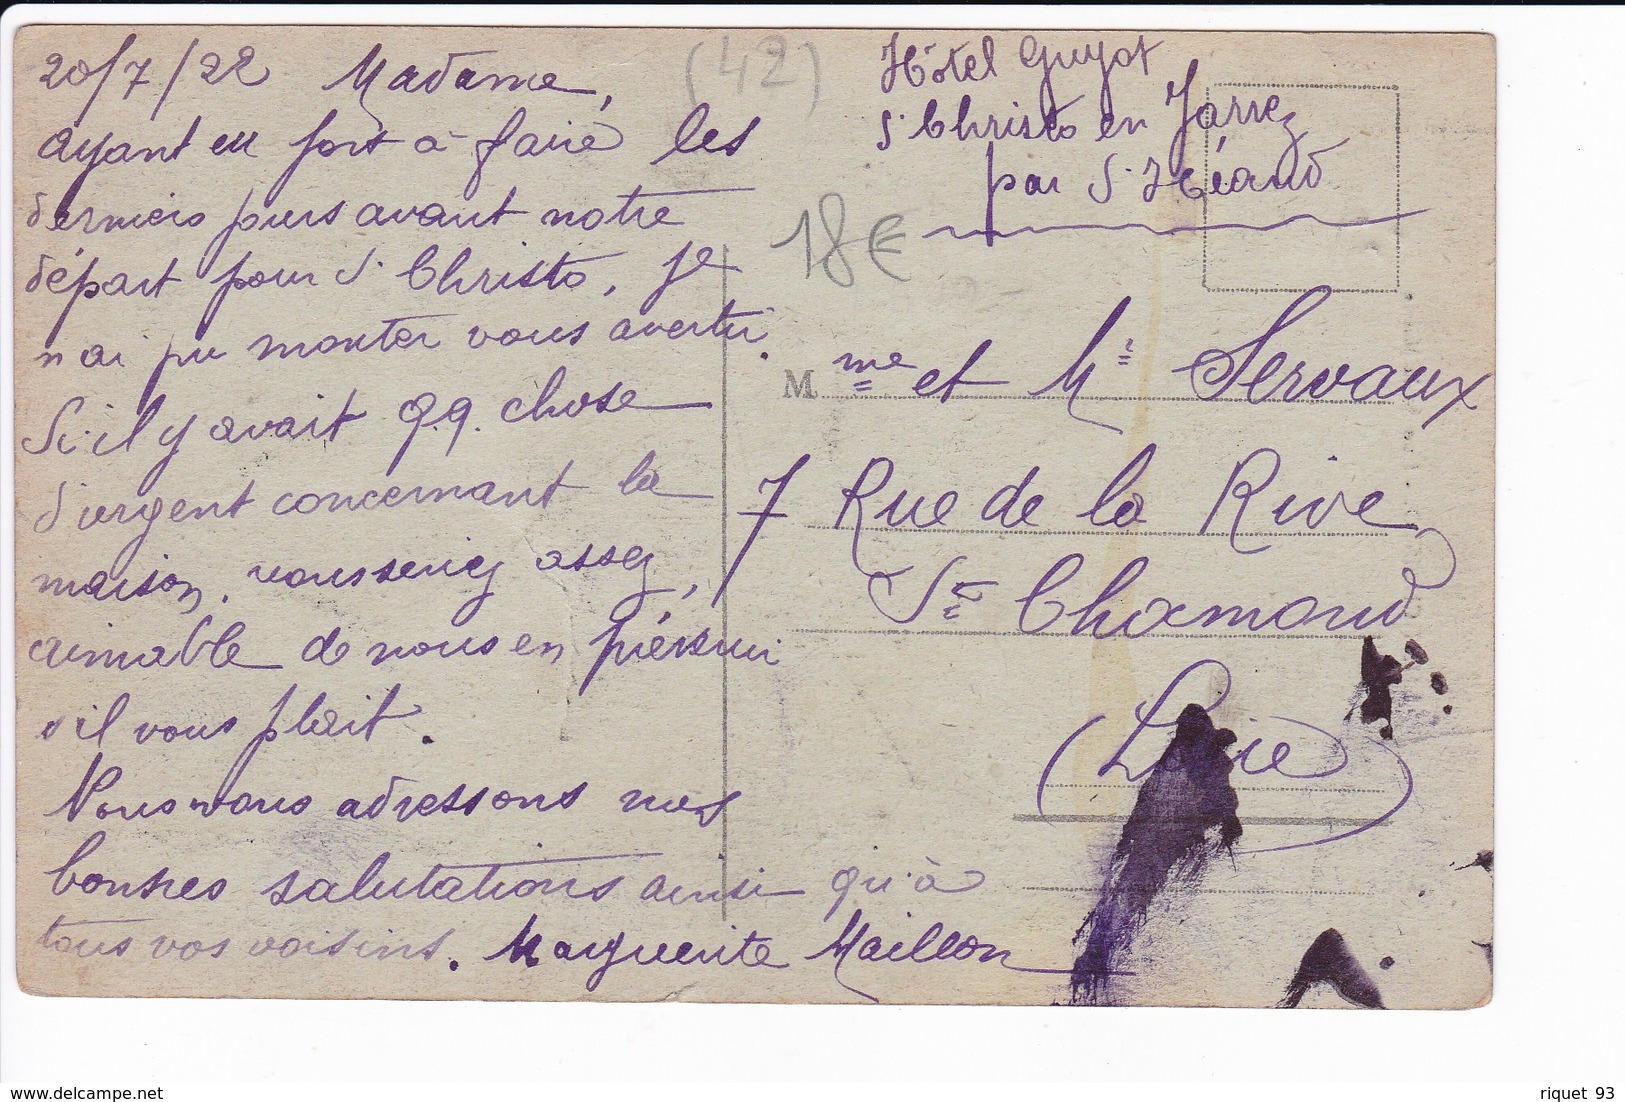 20/7/22 Madame,
ayant eu fort à faire les
derniers jours avant notre
départ pour St Christo, je
n'ai pu monter vous avertir.
Si il y avait q.q. chose
d'urgent concernant la
maison, vous seriez assez
aimable de nous en prévenir
s'il vous plait.
Nous vous adressons nos
bonnes salutations ainsi qu'à
tous vos voisins. Marguerite Maillon
(42)
Hôtel Guyot
St Christo en Jarrez
par St Héand
18€
Mme et Mr Servaux
7 Rue de la Rive
St Chamond
(Loire)
riquet 93